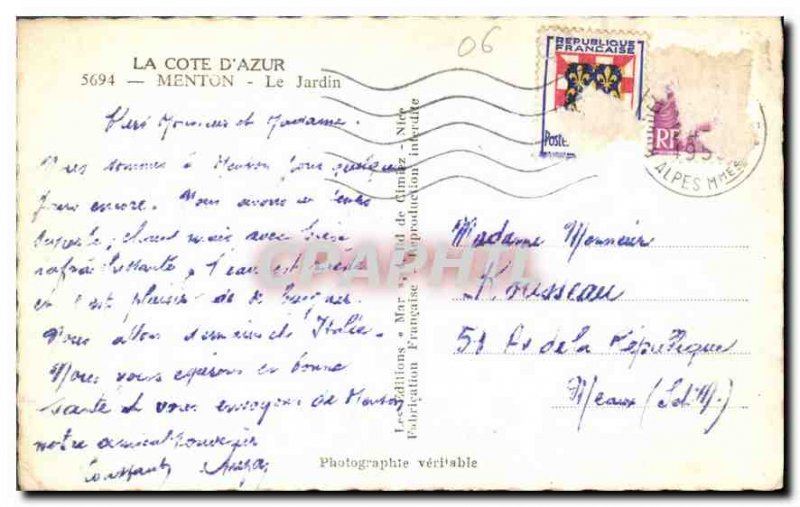 LA COTE D'AZUR
5694 — MENTON - Le Jardin
06
REPUBLIQUE
FRANCAISE
Poste
RF
ALPES MMES
Monsieur et Madame.
Nous sommes à Menton pour quelques
jours encore. Nous avons un temps
mais avec brise
rafraîchissante, l'eau est
et c'est plaisir de se baigner.
Nous allons demain
Nous vous espérons en bonne
santé et vous envoyons de Menton
notre amical souvenir
Madame Monsieur
Rousseau
51 Av de la République
Meaux (S et M.)
Les Editions " Mar " Bld de Cimiez - Nice
Fabrication Française - Reproduction interdite
CPAPHIL
Photographie véritable